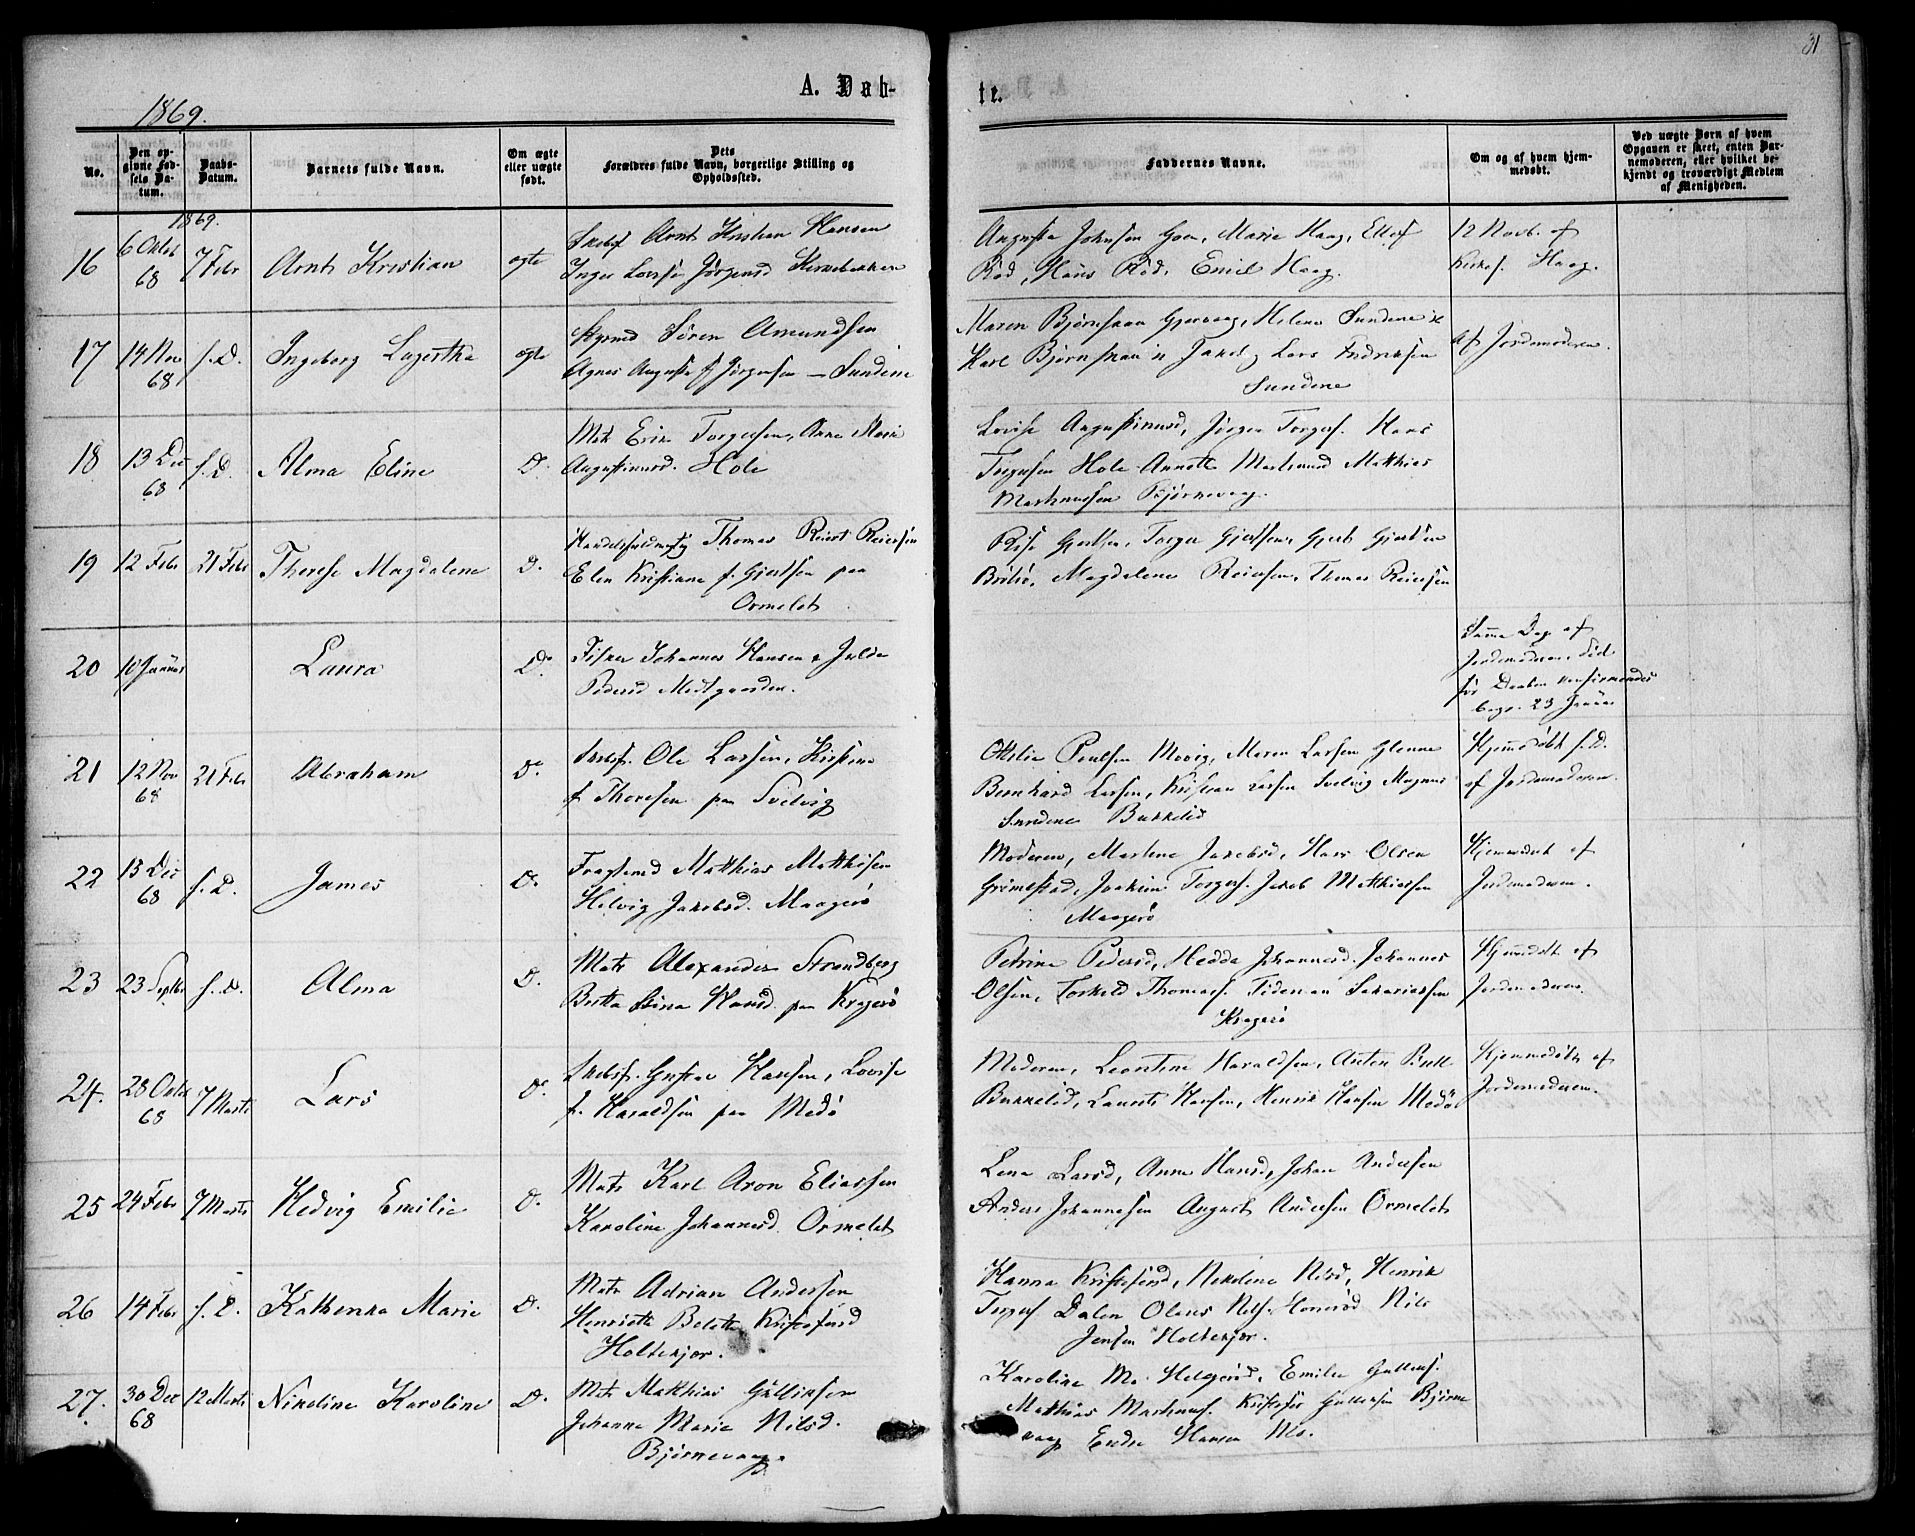 31
A. Døb-
te.
1869.
No.
Den op-
givne Fød-
sels Da-
tum.
Daabs-
Datum.
Barnets fulde Navn.
Om ægte
eller uægte
født.
Dets
Forældres fulde Navn, borgerlige Stilling og
Opholdssted.
Faddernes Navne.
Om og af hvem hjem-
medøbt.
Ved uægte Børn af hvem
Opgaven er skeet, enten Bar-
nemoderen, eller hvilket be-
kjendt og troværdigt Medlem
af Menigheden.
1869.
16
6 Octob
68
7 Febr
Arnt Kristian
ægte
Arnt Kristian Hansen
Inger Lovise Jörgensd
Augusta Johnsen Goen, Marie Haag,
Röd, Hans Röd, Emil Haag.
12 Novb. af
Haag.
17
14 Nov
68
s. D.
Ingeborg Lagertha
ægte
Sören Amundsen
Agnes Augusta f Jörgensen — Sundene
Maren Björnskau Helene Sundene
Karl Björnskau Lars Fredriksen
Sundene
af Jordemoderen.
18
13 Dec
68
s. D.
Alma Eline
D.
Mats Erik Torgersen, Anne Marie
Augustinusd. Hole
Lovise Augustinusd, Jörgen Torgers. Hans
Torgersen Hole Annette Marthinusd Mathias
Marthinussen Björnevaag.
19
12 Febr
21 Febr
Therese Magdalene
D.
Handelsfuldmægtig Thomas Reiert Reiersen
Elen Kristiane f. Gjertsen paa
Ormelet
Gjertsen, Torger Gjertsen, Gjert Gjertsen
Magdalene Reiersen, Thomas Reiersen
20
10 Januar
Laura
Do
Fisker Johannes Hansen & Julda
Pedersd Medtgaarden.
Samme Dag af
Jordemoderen, död
för Daaben
begr. 23 Januar
21
12 Nov
68
21 Febr
Abraham
Do
Ole Larsen, Kirstine
f. Thoresen paa Svelvig
Otilie Poulsen Movig, Maren Larsen Glenne
Bernhard Larsen, Kristian Larsen Svelvig Magnus
Sundene Bukkelid
Hjemmedöbt s. D.
af Jordemoderen.
22
13 Dec
68
s. D.
James
D.
Fragtmd Mathias Mathisen
Helvig Jakobsd. Maagerö
Moderen, Martine Jakobsd, Hans Olsen
Grimestad, Joakim Torgers. Jakob Mathiassen
Maagerö
Hjemmedöbt af
Jordemoderen.
23
23 Septbr
s. D.
Alma
D.
Mats Alexander Strandberg
Berthe Lina Hansd. paa Kragerö
Petrine Pedersd, Hedda Johannesd. Johannes
Olsen, Torkild Thomas. Tideman Sakariassen
Kragerö
Hjemmedöbt af
Jordemoderen.
24.
28 Octob
68
7 Marts
Lars
Do
Gustav Hansen, Lovise
f. Haraldsen paa Medö
Moderen, Leontine Haraldsen, Anton
Bukkelid, Laurits Hansen, Henrik Hansen Medö
Hjemmedöbt af
Jordemoderen.
25
24 Febr
7 Marts
Hedvig Emilie
D.
Mats Karl Aron Eliassen
Karoline Johannesd. Ormelet
Lena Larsd, Anne Hansd, Johan Andersen
Anders Johannesen August Andersen Ormelet
26
14 Febr
s. D.
Kathenka Marie
D.
Mats Adrian Andersen
Henriette Belette Kristofersd
Holtekjær.
Hanna Kristofersd, Nikoline Nilsd, Henrik
Torgers Dalen Olaus Nils
Jensen Holtekjær.
27.
30 Dec
68
12 Marts
Nikoline Karoline
D.
Mats Mathias Gulliksen
Johanne Marie Nilsd.
Björnevaag.
Karoline Helgeröd, Emilie Gulliks.
Mathias Marthinus. Kristofer Gulliksen Björne
vaag Hansen